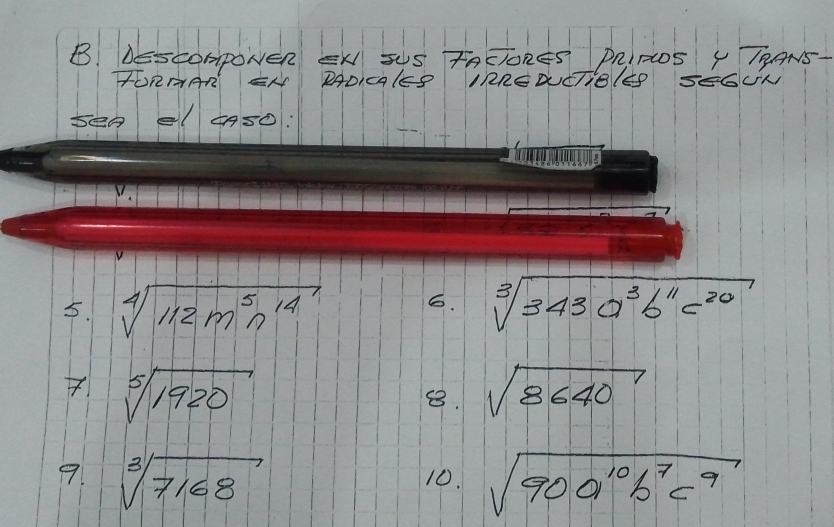 B. DESCOMPONER EN SUS FACTORES PRIMOS Y TRANS-
FORMAR EN RADICALES IRREDUCTIBLES SEGUN
SEA el CASO:
5. ∜(112m⁵n¹⁴)
6. ∛(343a³b¹¹c²⁰)
7. ⁵√1920
8. √8640
9. ∛7168
10. √(90a¹⁰b⁷c⁹)